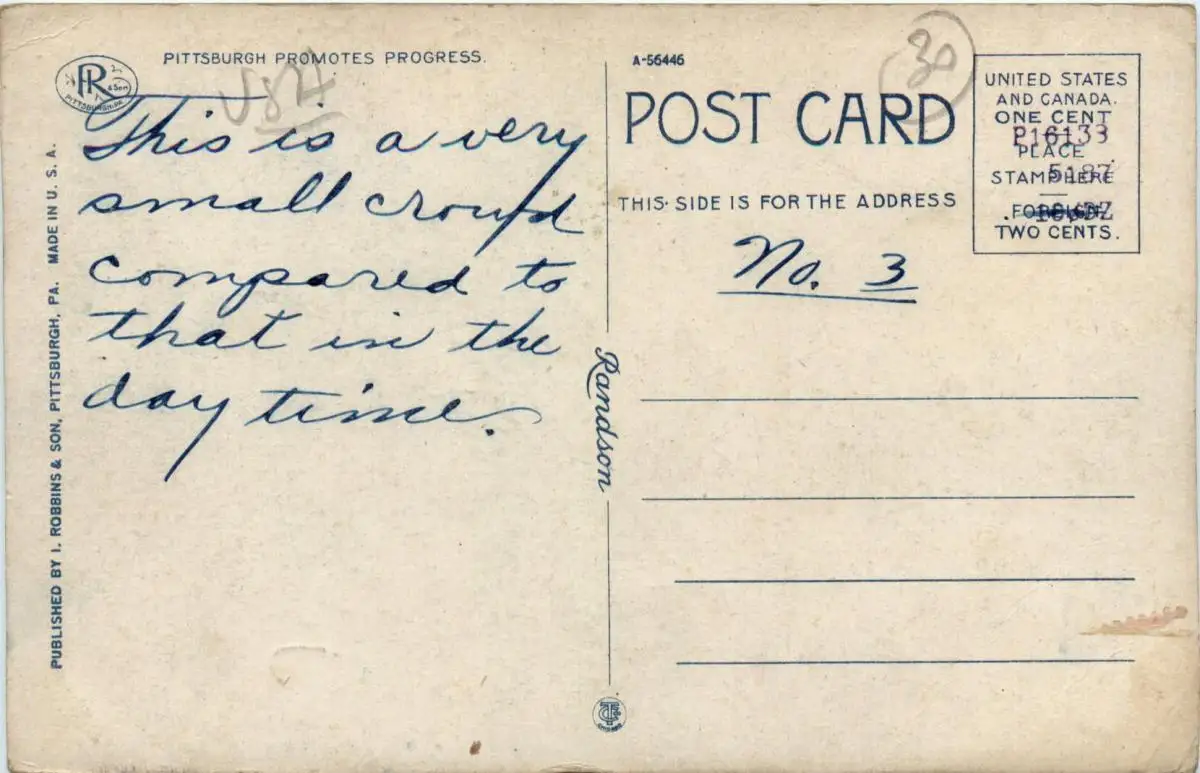 PITTSBURGH PROMOTES PROGRESS.
R
& Son
PITTSBURGH-PA.
U87
This is a very
small crowd
compared to
that in the
day time.
PUBLISHED BY I. ROBBINS & SON, PITTSBURGH, PA. MADE IN U. S. A.
Randson
A-56446
30
POST CARD
THIS SIDE IS FOR THE ADDRESS
No. 3
UNITED STATES
AND CANADA.
ONE CENT
P16133
PLACE
5187
STAMP HERE
FOREIGN
TWO CENTS.